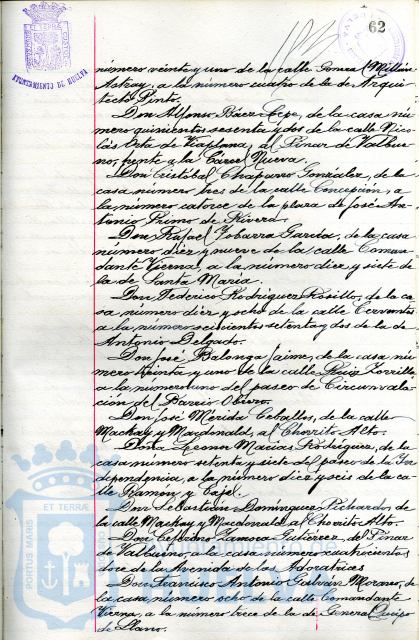 AYUNTAMIENTO DE HUELVA
62
número veinte y uno de la calle General Millán
Astray, a la número cuatro de la de Arqui-
tecto Pinto.
Don Alfonso Báez Lepe, de la casa nú-
mero quinientos sesenta y dos de la calle Nico-
lás Orta de Viaplana, al Pinar de Valbue-
no, frente a la Cárcel Nueva.
Don Cristóbal Chaparro González, de la
casa número tres de la calle Concepción, a
la número catorce de la plaza de José An-
tonio Primo de Rivera.
Don Rafael Ybarra García, de la casa
número diez y nueve de la calle Coman-
dante Vierna, a la número diez y siete de
la de Santa María.
Don Federico Rodríguez Rosillo, de la ca-
sa número diez y ocho de la calle Cervantes
a la número seiscientos setenta y dos de la de
Antonio Delgado.
Don José Balonga Jaime, de la casa nú-
mero treinta y uno de la calle Ruiz Zorrilla
a la número uno del paseo de Circunvala-
ción del Barrio Obrero.
Don José Mérida Ceballos, de la calle
Mackay y Macdonald, al Chorrito Alto.
Doña Leonor Macías Rodríguez, de la
casa número setenta y siete del paseo de la In-
dependencia, a la número diez y seis de la ca-
lle Ramón y Cajal.
Don Sebastián Domínguez Pichardos de
la calle Mackay y Macdonald al Chorrito Alto.
Don Ceferino Zamora Gutiérrez, del Pinar
de Valbueno, a la casa número cuatrocientos
doce de la Avenida de las Adoratrices
Don Francisco Antonio Galván Morano, de
la casa número ocho de la calle Comandante
Vierna, a la número trece de la de General Queipo
de Llano.
PORTUS MARIS ET TERRAE